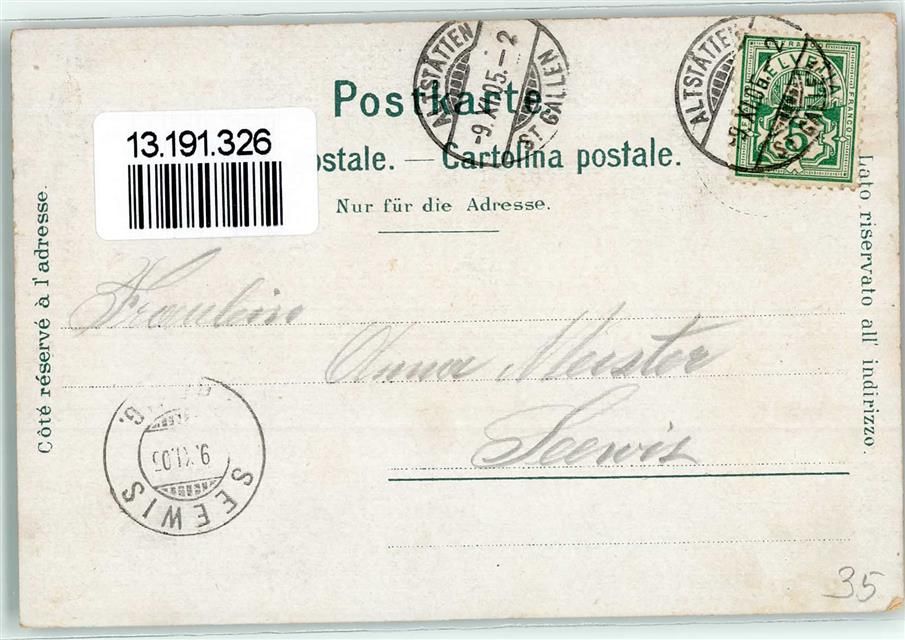 Postkarte.
ostale. — Cartolina postale.
Nur für die Adresse.
13.191.326
Côté réservé à l'adresse.
Lato riservato all' indirizzo.
ALTSTÄTTEN
-9.XI.05.-2
ST GALLEN
ALTSTÄTTEN
-9.XI.05.-2
ST GALLEN
HELVETIA
FRANCO
5
Fraulein
Anna Meister
Seewis
SEEWIS
9.XI.05
35